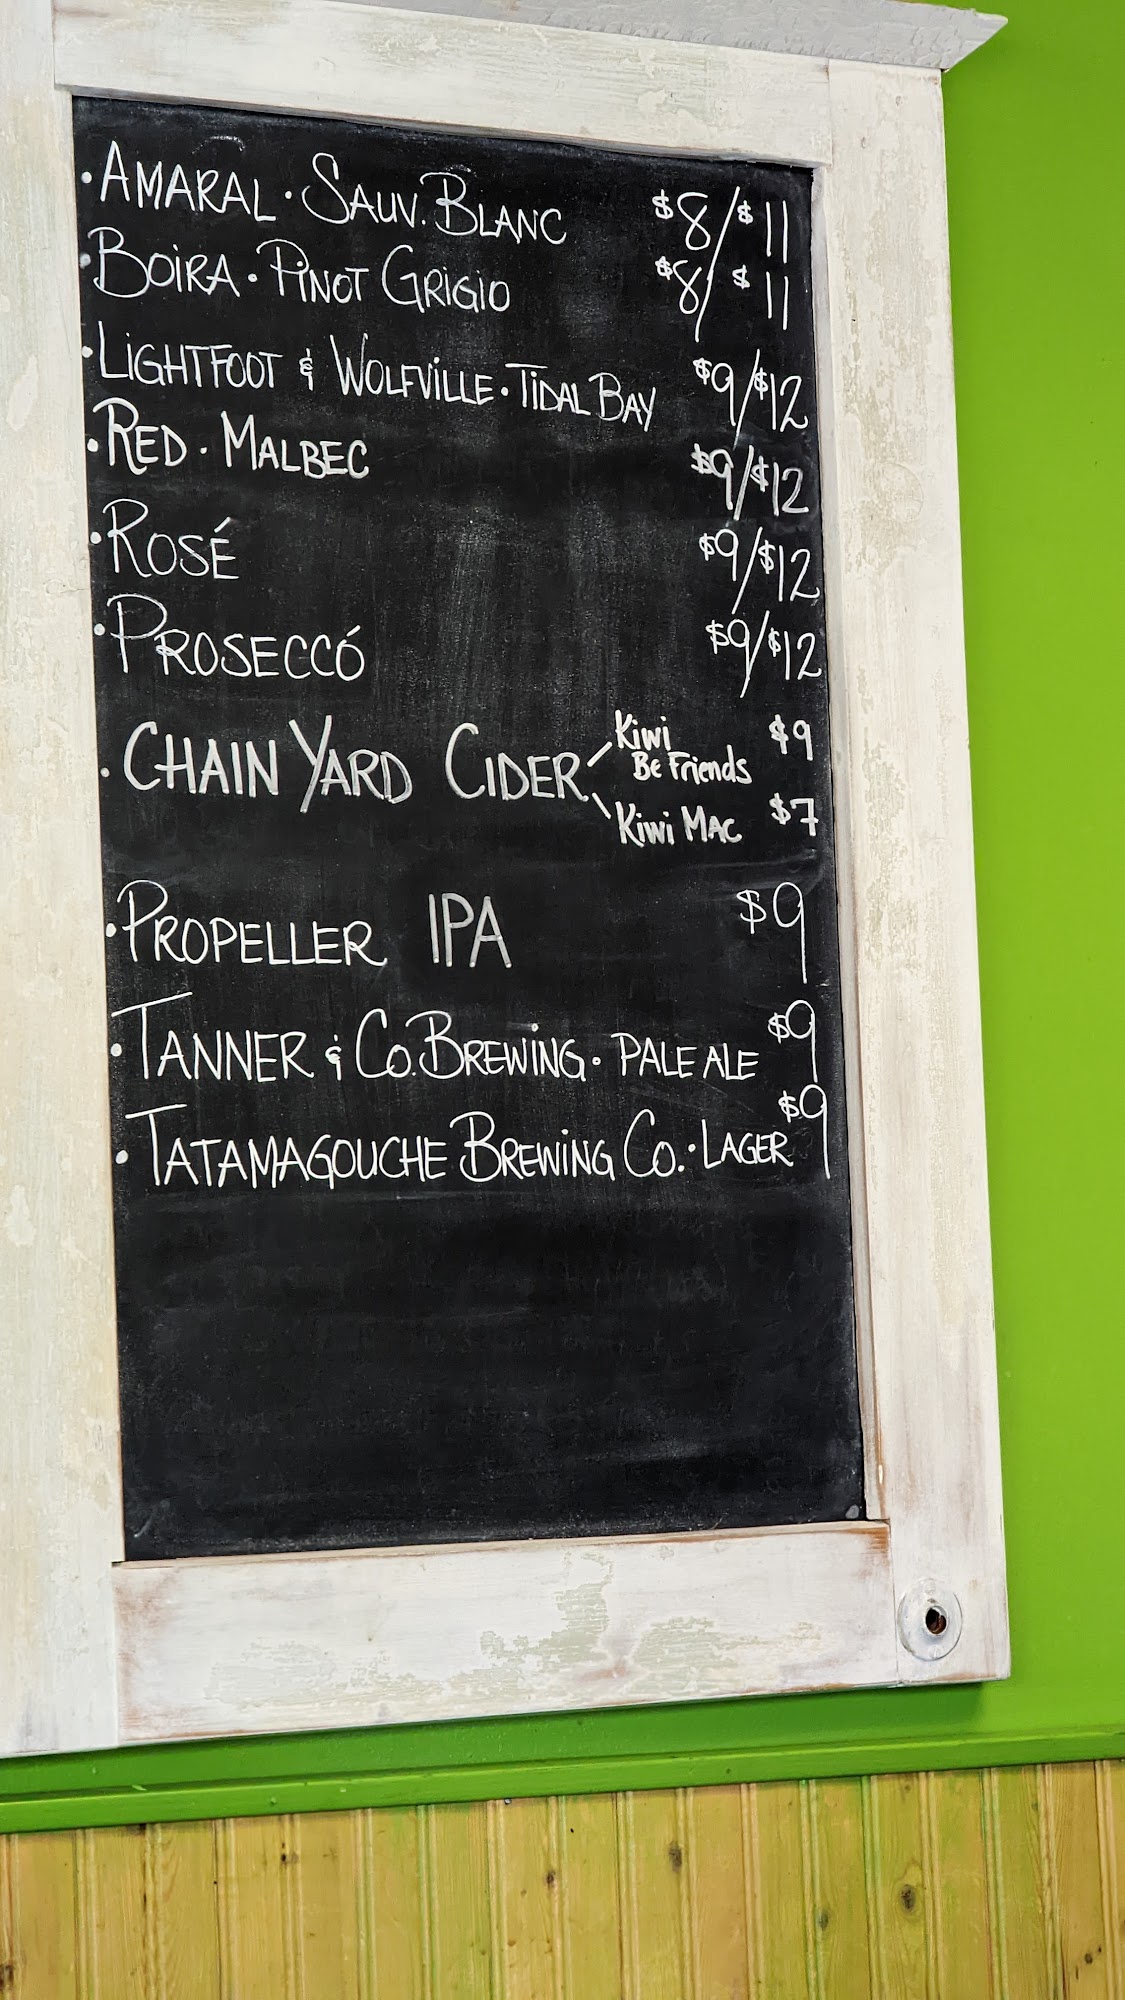 ·AMARAL·SAUV. BLANC $8/$11
·BOiRA·PiNOT GRiGiO $8/$11
·LiGHTFOOT & WOLFViLLE·TiDAL BAY $9/$12
·RED·MALBEC $9/$12
·ROSÉ $9/$12
·PROSECCÓ $9/$12
·CHAIN YARD CIDER
Kiwi Be Friends $9
Kiwi MAC $7
·PROPELLER IPA $9
·TANNER & Co. BREWiNG· PALE ALE $9
·TATAMAGOUCHE BREWiNG Co.·LAGER $9